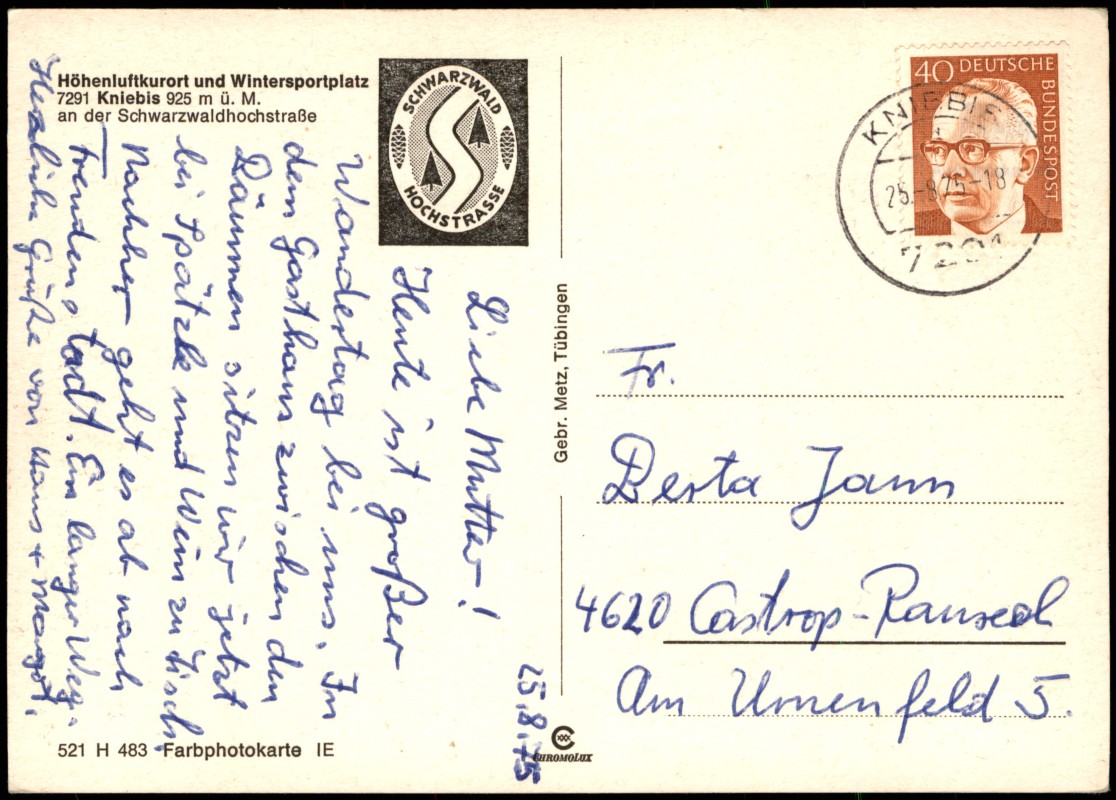 Höhenluftkurort und Wintersportplatz
7291 Kniebis 925 m ü. M.
an der Schwarzwaldhochstraße
SCHWARZWALD
HOCHSTRASSE
25.8.75
Liebe Mutter!
Heute ist großer
Wandertag bei uns. In
dem Gasthaus zwischen den
Bäumen sitzen wir jetzt
bei Spätzle und Wein zu Tisch.
Nachher geht es ab nach
Freudenstadt. Ein langer Weg.
Herzliche Grüße von Hans + Margot.
521 H 483 Farbphotokarte IE
Gebr. Metz, Tübingen
CHROMOLUX
40 DEUTSCHE
BUNDESPOST
KNIEBIS
25.-8.75-18
7291
Fr.
Berta Jann
4620 Castrop-Rauxel
Am Urnenfeld 5.